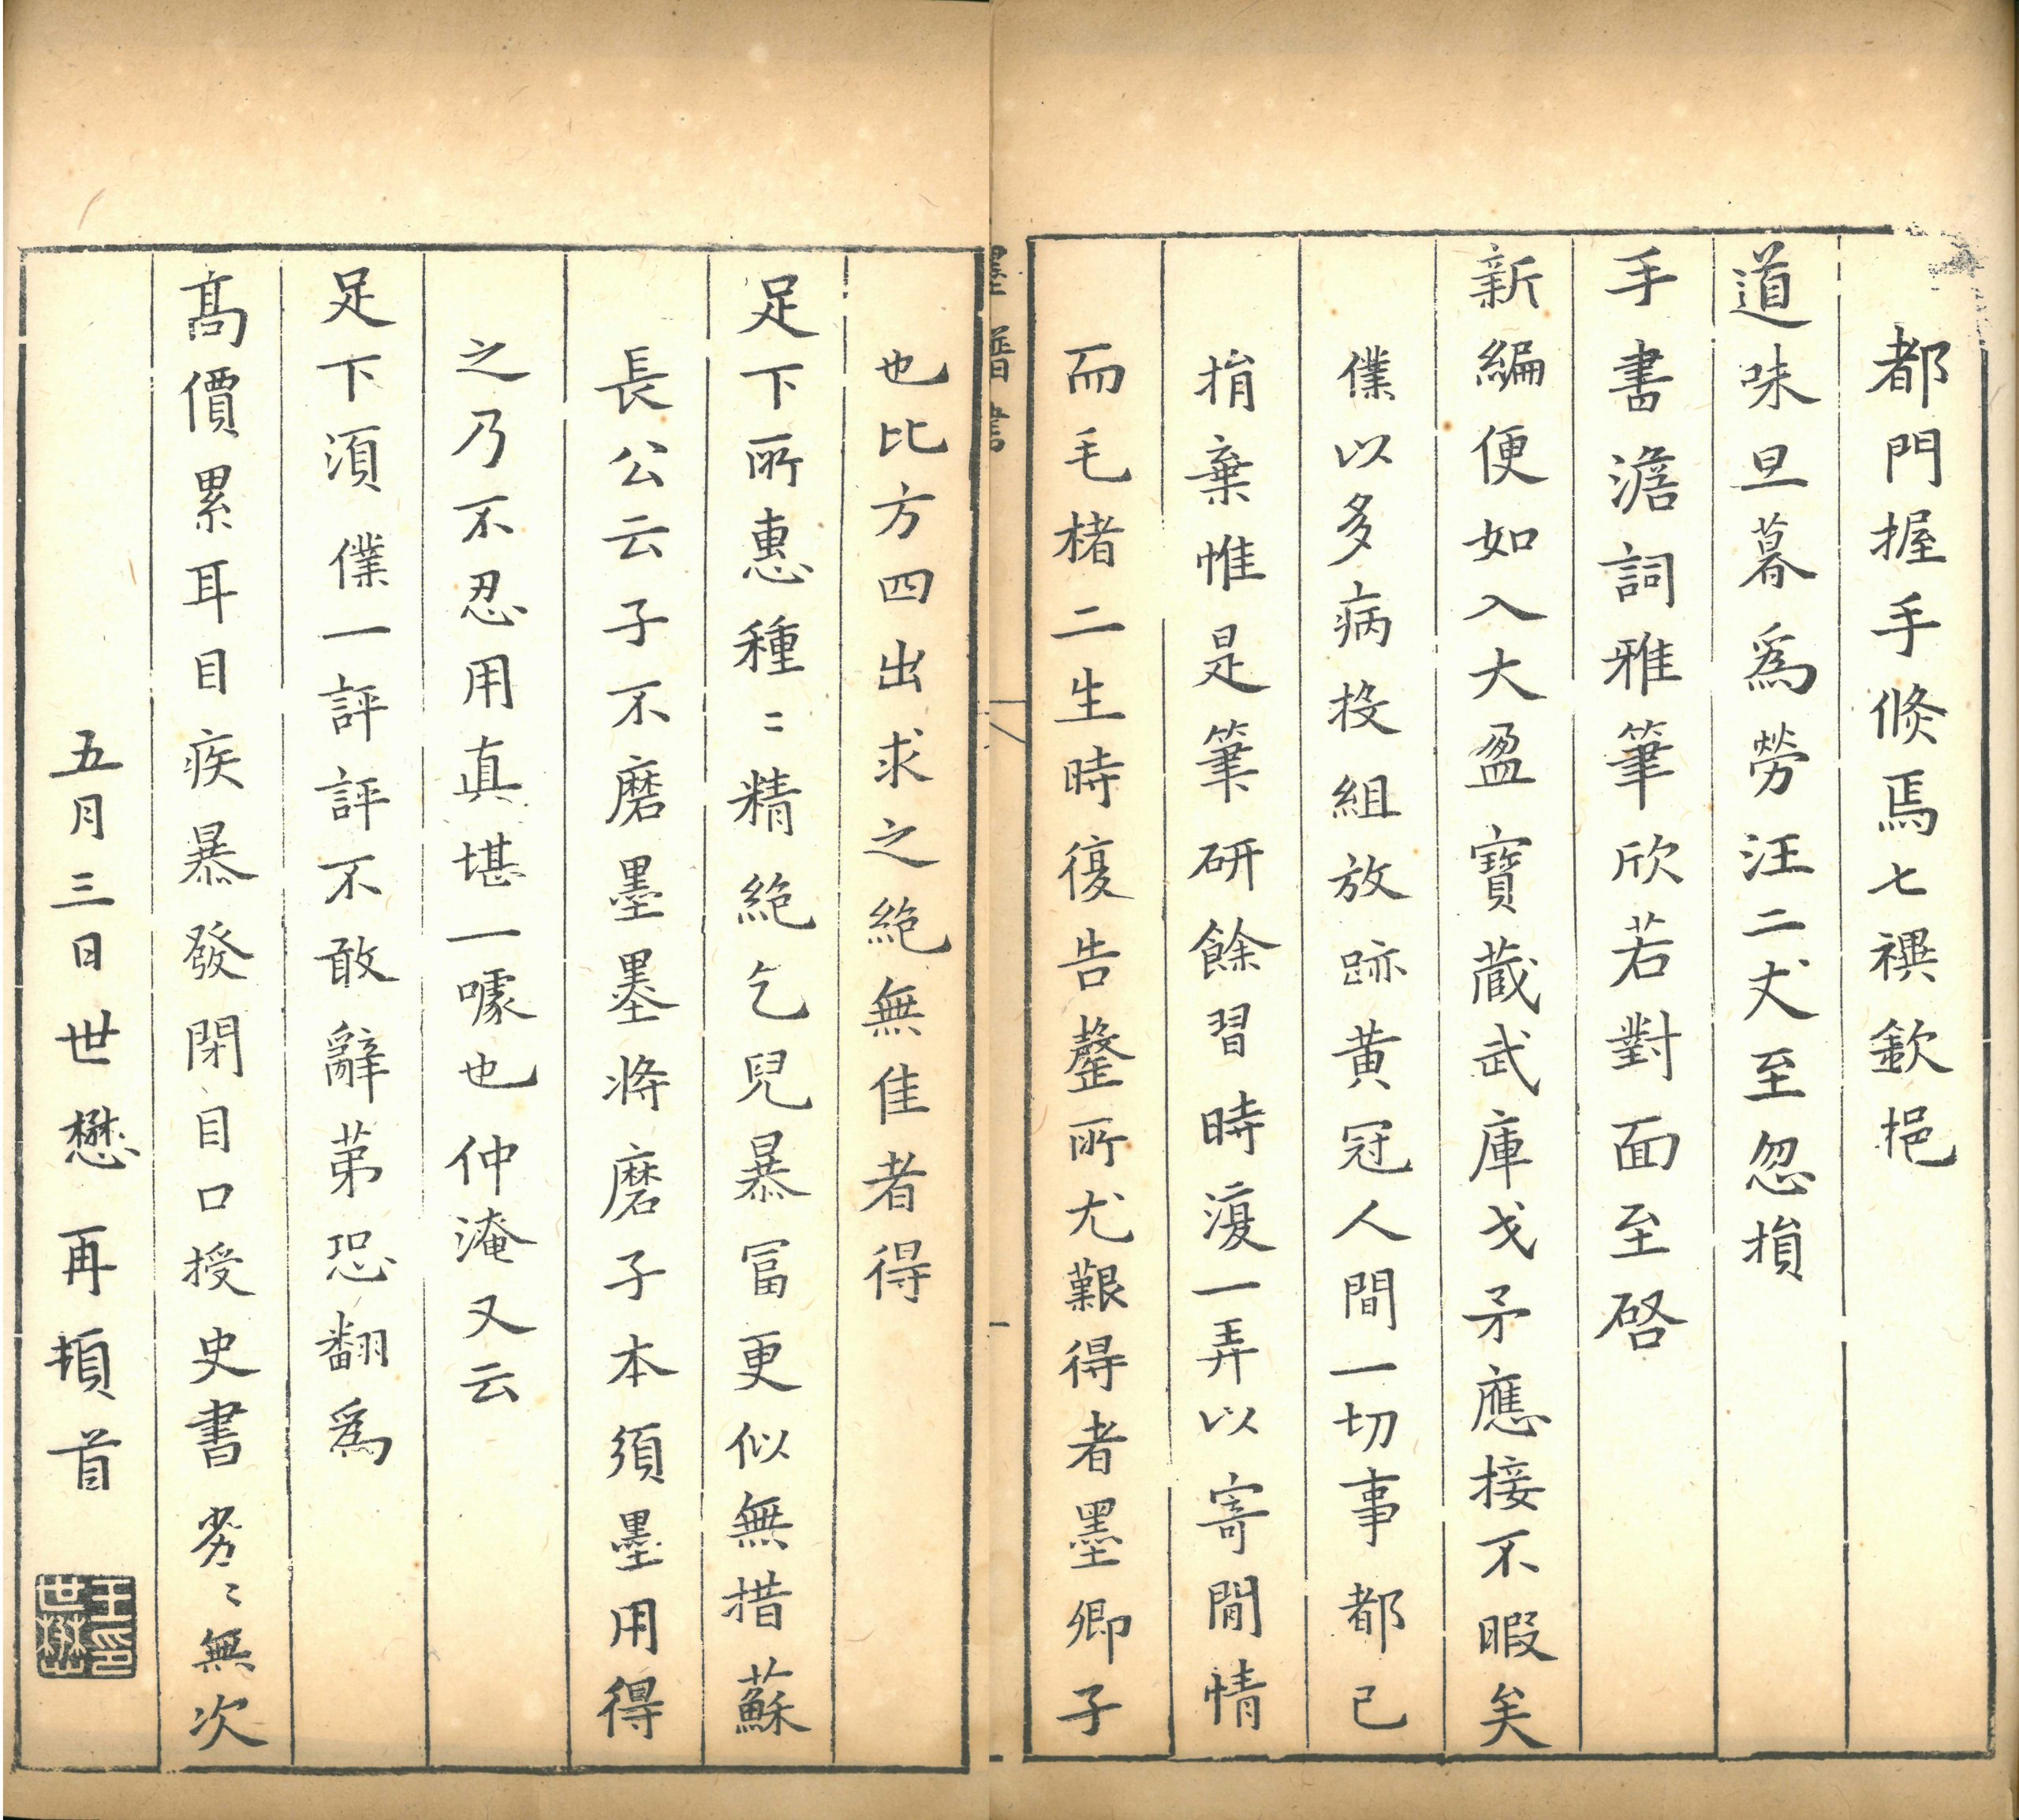 都門握手倏焉七禩欽挹
道味旦暮爲勞汪二丈至忽損
手書澹詞雅筆欣若對面至啓
新編便如入大盈寶藏武庫戈矛應接不暇矣
僕以多病投組放跡黄冠人間一切事都已
捐棄惟是筆研餘習時澓一弄以寄閒情
而毛楮二生時復告罄所尤艱得者墨卿子
墨譜書
也比方四出求之絶無佳者得
足下所惠種〻精絶乞兒暴冨更似無措蘇
長公云子不磨墨墨將磨子本須墨用得
之乃不忍用真堪一噱也仲淹又云
足下須僕一評評不敢辭苐恐翻爲
髙價累耳目疾暴發閉目口授史書劣〻無次
五月三日世懋再頓首
王世懋印